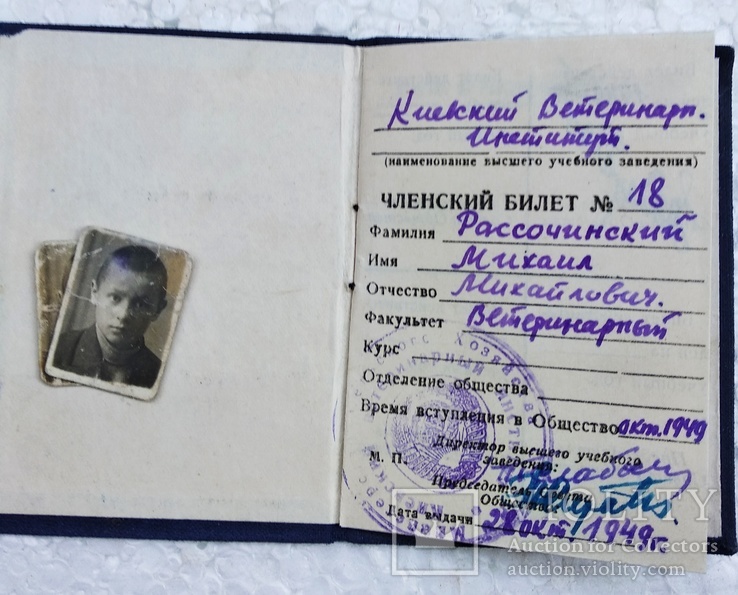 Киевский Ветеринарн.
Институт.
(наименование высшего учебного заведения)
ЧЛЕНСКИЙ БИЛЕТ № 18
Фамилия Рассочинский
Имя Михаил
Отчество Михайлович.
Факультет Ветеринарный
Курс
Отделение общества
Время вступления в Общество окт. 1949
Директор высшего учебного
заведения:
М. П.
Председатель
Общества
Дата выдачи 28 окт 1949 г.
VIOLITY
Auction for Collectors
auction.violity.com